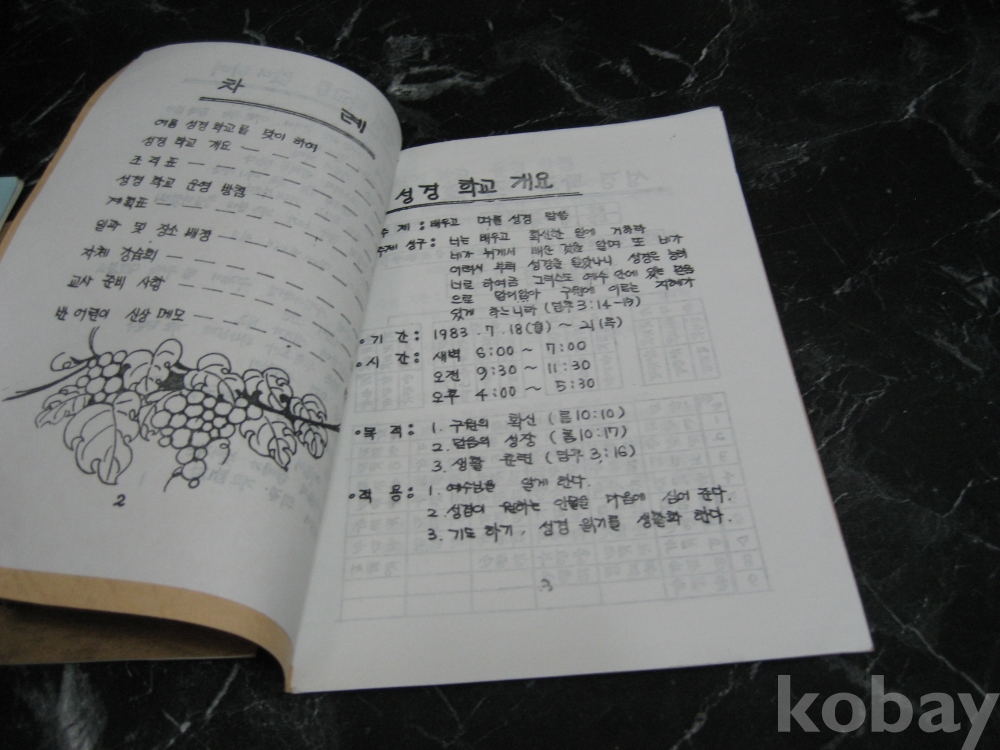 차 례
여름 성경 학교를 맞이 하여
성경 학교 개요
조직표
성경 학교 운영 방침
계획표
일과 및 장소 배정
자체 강습회
교사 준비 사항
반 어린이 신상 메모
2
성경 학교 개요
주제: 배우고 따를 성경 말씀
주제 성구: 너는 배우고 확신한 일에 거하라
네가 뉘게서 배운 것을 알며 또 네가
어려서 부터 성경을 알았나니 성경은 능히
너로 하여금 그리스도 예수 안에 있는 믿음
으로 말미암아 구원에 이르는 지혜가
있게 하느니라 (딤후 3:14-15)
기간: 1983. 7. 18(월) ~ 21(목)
시간: 새벽 6:00 ~ 7:00
오전 9:30 ~ 11:30
오후 4:00 ~ 5:30
목적: 1. 구원의 확신 (롬10:10)
2. 믿음의 성장 (롬10:17)
3. 생활 훈련 (딤후 3:16)
적용: 1. 예수님을 알게 한다.
2. 성경이 원하는 인물을 마음에 심어 준다.
3. 기도 하기, 성경 읽기를 생활화 한다.
3
kobay